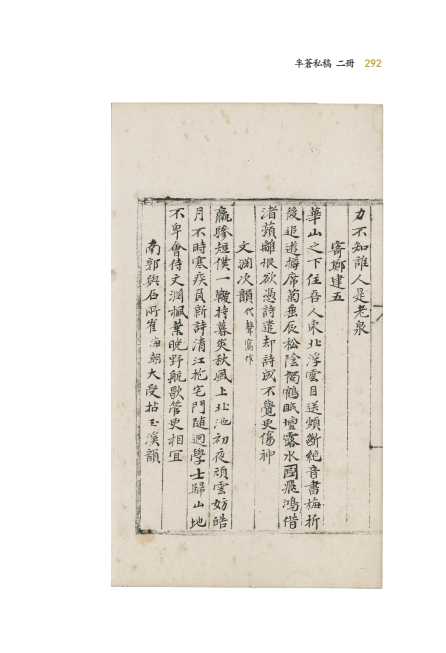 半蒼私稿 二冊 292
力不知誰人是老泉
寄鄭建五
華山之下住吾人東北浮雲目送頻斷絶音書梅折
後追遊樽席菊垂辰松陰獨鶴眠壇露水國飛鴻偕
渚蘋離恨欲憑詩遣却詩成不覺更傷神
文澗次韻 代聲寫作
羸驂短僕一襆持暮炎秋風上北池初夜頑雲妨皓
月不時寒疾負新詩清江抱宅門隨迥學士歸山地
不卑會待文澗楓葉晩野航歌管更相宜
南郭與石所崔海朝大受拈玉溪韻